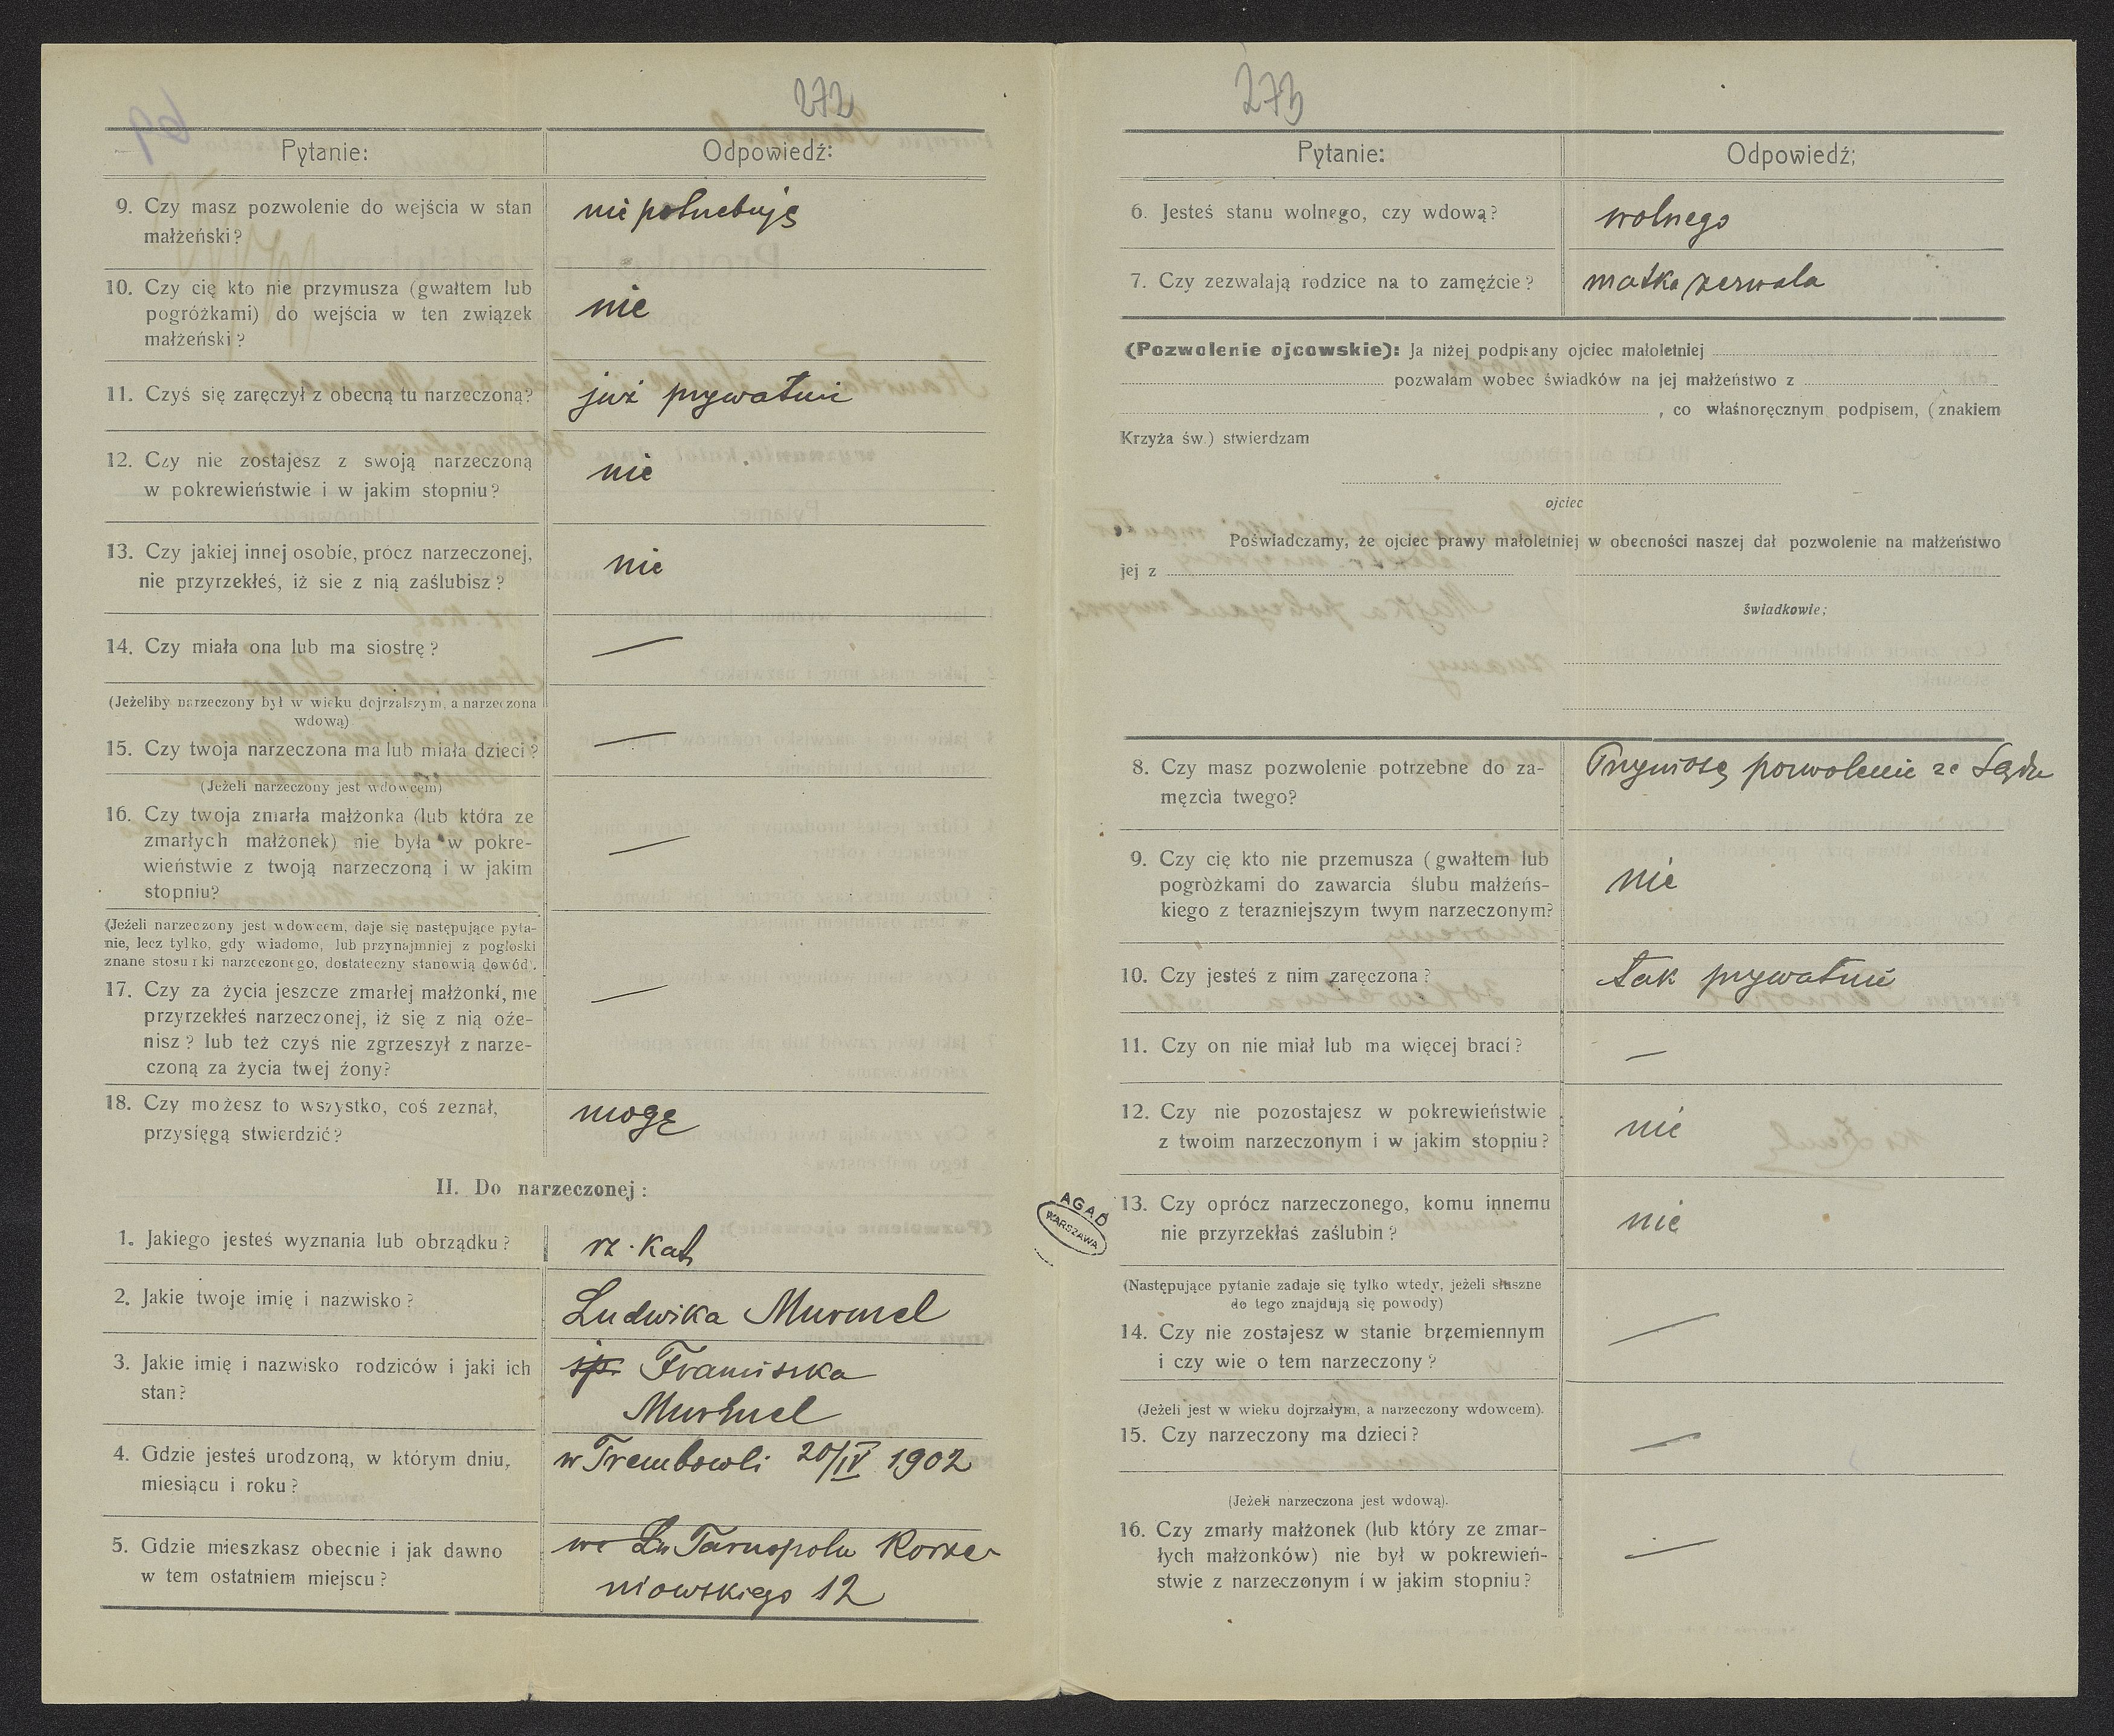 272
Pytanie:
Odpowiedź:
9. Czy masz pozwolenie do wejścia w stan
małżeński?
nie potrzebuję
10. Czy cię kto nie przymusza (gwałtem lub
pogróżkami) do wejścia w ten związek
małżeński?
nie
11. Czyś się zaręczył z obecną tu narzeczoną?
już prywatnie
12. Czy nie zostajesz z swoją narzeczoną
w pokrewieństwie i w jakim stopniu?
nie
13. Czy jakiej innej osobie, prócz narzeczonej,
nie przyrzekłeś, iż sie z nią zaślubisz?
nie
14. Czy miała ona lub ma siostrę?
—
(Jeżeliby narzeczony był w wieku dojrzalszym, a narzeczona
wdową)
15. Czy twoja narzeczona ma lub miała dzieci?
—
(Jeżeli narzeczony jest wdowcem)
16. Czy twoja zmarła małżonka (lub która ze
zmarłych małżonek) nie była w pokre-
wieństwie z twoją narzeczoną i w jakim
stopniu?
—
(Jeżeli narzeczony jest wdowcem, daje się następujące pyta-
nie, lecz tylko, gdy wiadomo, lub przynajmniej z pogłoski
znane stosunki narzeczonego, dostateczny stanowią dowód).
17. Czy za życia jeszcze zmarłej małżonki, nie
przyrzekłeś narzeczonej, iż się z nią oże-
nisz? lub też czyś nie zgrzeszył z narze-
czoną za życia twej żony?
—
18. Czy możesz to wszystko, coś zeznał,
przysięgą stwierdzić?
mogę
II. Do narzeczonej:
1. Jakiego jesteś wyznania lub obrządku?
rz. kat
2. Jakie twoje imię i nazwisko?
Ludwika Murmel
3. Jakie imię i nazwisko rodziców i jaki ich
stan?
śp. Franciszka
Murmel
4. Gdzie jesteś urodzoną, w którym dniu,
miesiącu i roku?
w Trembowli 20/IV 1902
5. Gdzie mieszkasz obecnie i jak dawno
w tem ostatniem miejscu?
we Lw Tarnopolu Korze-
niowskiego 12
AGAD
WARSZAWA
273
Pytanie:
Odpowiedź;
6. Jesteś stanu wolnego, czy wdową?
wolnego
7. Czy zezwalają rodzice na to zamęźcie?
matka zezwala
(Pozwolenie ojcowskie): Ja niżej podpisany ojciec małoletniej
pozwalam wobec świadków na jej małżeństwo z
, co własnoręcznym podpisem, (znakiem
Krzyża św.) stwierdzam
ojciec
Poświadczamy, że ojciec prawy małoletniej w obecności naszej dał pozwolenie na małżeństwo
jej z
świadkowie;
8. Czy masz pozwolenie potrzebne do za-
męzcia twego?
Przyniosę pozwolenie ze Sądu
9. Czy cię kto nie przemusza (gwałtem lub
pogròżkami do zawarcia ślubu małżeńs-
kiego z terazniejszym twym narzeczonym?
nie
10. Czy jesteś z nim zaręczona?
tak prywatnie
11. Czy on nie miał lub ma więcej braci?
—
12. Czy nie pozostajesz w pokrewieństwie
z twoim narzeczonym i w jakim stopniu?
nie
13. Czy oprócz narzeczonego, komu innemu
nie przyrzekłaś zaślubin?
nie
(Następujące pytanie zadaje się tylko wtedy, jeżeli słuszne
do tego znajdują się powody)
14. Czy nie zostajesz w stanie brzemiennym
i czy wie o tem narzeczony?
—
(Jeżeli jest w wieku dojrzałym, a narzeczony wdowcem).
15. Czy narzeczony ma dzieci?
—
(Jeżeli narzeczona jest wdową).
16. Czy zmarły małżonek (lub który ze zmar-
łych małżonków) nie był w pokrewień-
stwie z narzeczonym i w jakim stopniu?
—